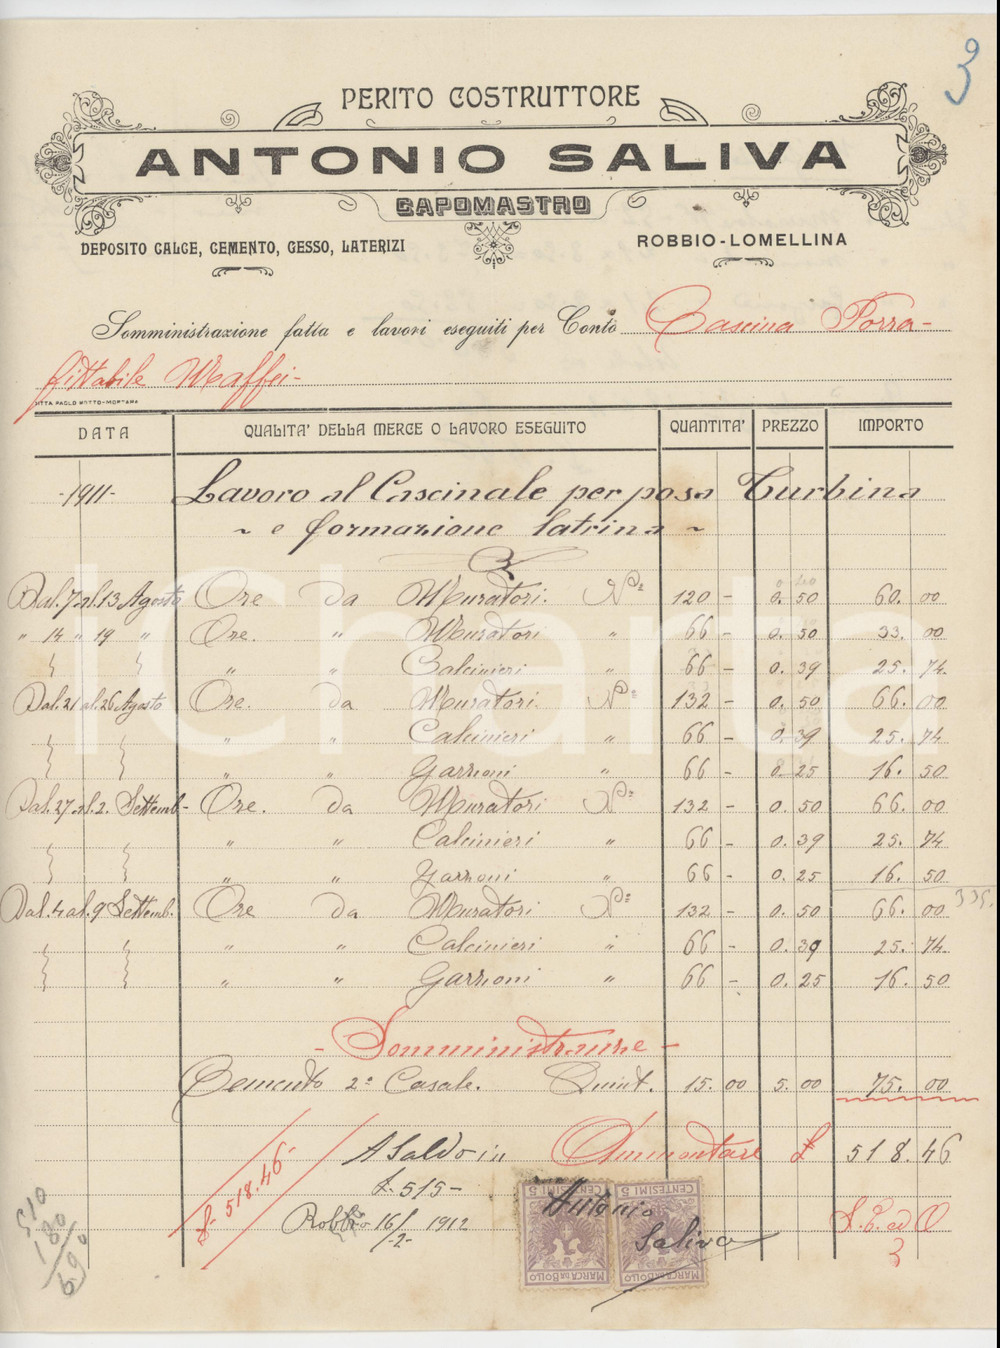 3
PERITO COSTRUTTORE
ANTONIO SALIVA
CAPOMASTRO
DEPOSITO CALCE, CEMENTO, GESSO, LATERIZI
ROBBIO-LOMELLINA
Somministrazione fatta e lavori eseguiti per Conto Cascina Porra-
fittabile Maffei-
DITTA PAOLO BOTTO-MORTARA
DATA QUALITA' DELLA MERCE O LAVORO ESEGUITO QUANTITA' PREZZO IMPORTO
-1911- Lavoro al Cascinale per posa Turbina
~ e formazione latrina ~
Dal. 7 al. 13 Agosto Ore da Muratori. N° 120 - 0. 50 60. 00
" 14 " 19 " Ore. " Muratori " 66 - 0. 50 33. 00
" " Calcinieri " 66 - 0. 39 25. 74.
Dal. 21 al. 26 Agosto Ore. da Muratori. N° 132 - 0. 50 66. 00
" " Calcinieri " 66 - 0. 39 25. 74
" " Garzoni " 66 - 0. 25 16. 50
Dal. 27 al. 2. Settemb- Ore. da Muratori N° 132 - 0. 50 66. 00
" " Calcinieri " 66 - 0. 39 25. 74
" " Garzoni " 66 - 0. 25 16. 50
Dal. 4 al. 9 Settemb. Ore da Muratori N° 132 - 0. 50 66. 00 335.
" " Calcinieri " 66 - 0. 39 25. 74.
" " Garzoni " 66 - 0. 25 16. 50
- Somministranze -
Cemento 2ª Casale. Quint. 15. 00 5. 00 75. 00
A Saldo in Ammontare £ 518. 46
£. 515 -
£. 518.46-
Robbio 16/-2- 1912
Antonio
Saliva
CENTESIMI 5 CENTESIMI 5
MARCA DA BOLLO MARCA DA BOLLO
S. E. ed O
3
510
180
690
iCharta